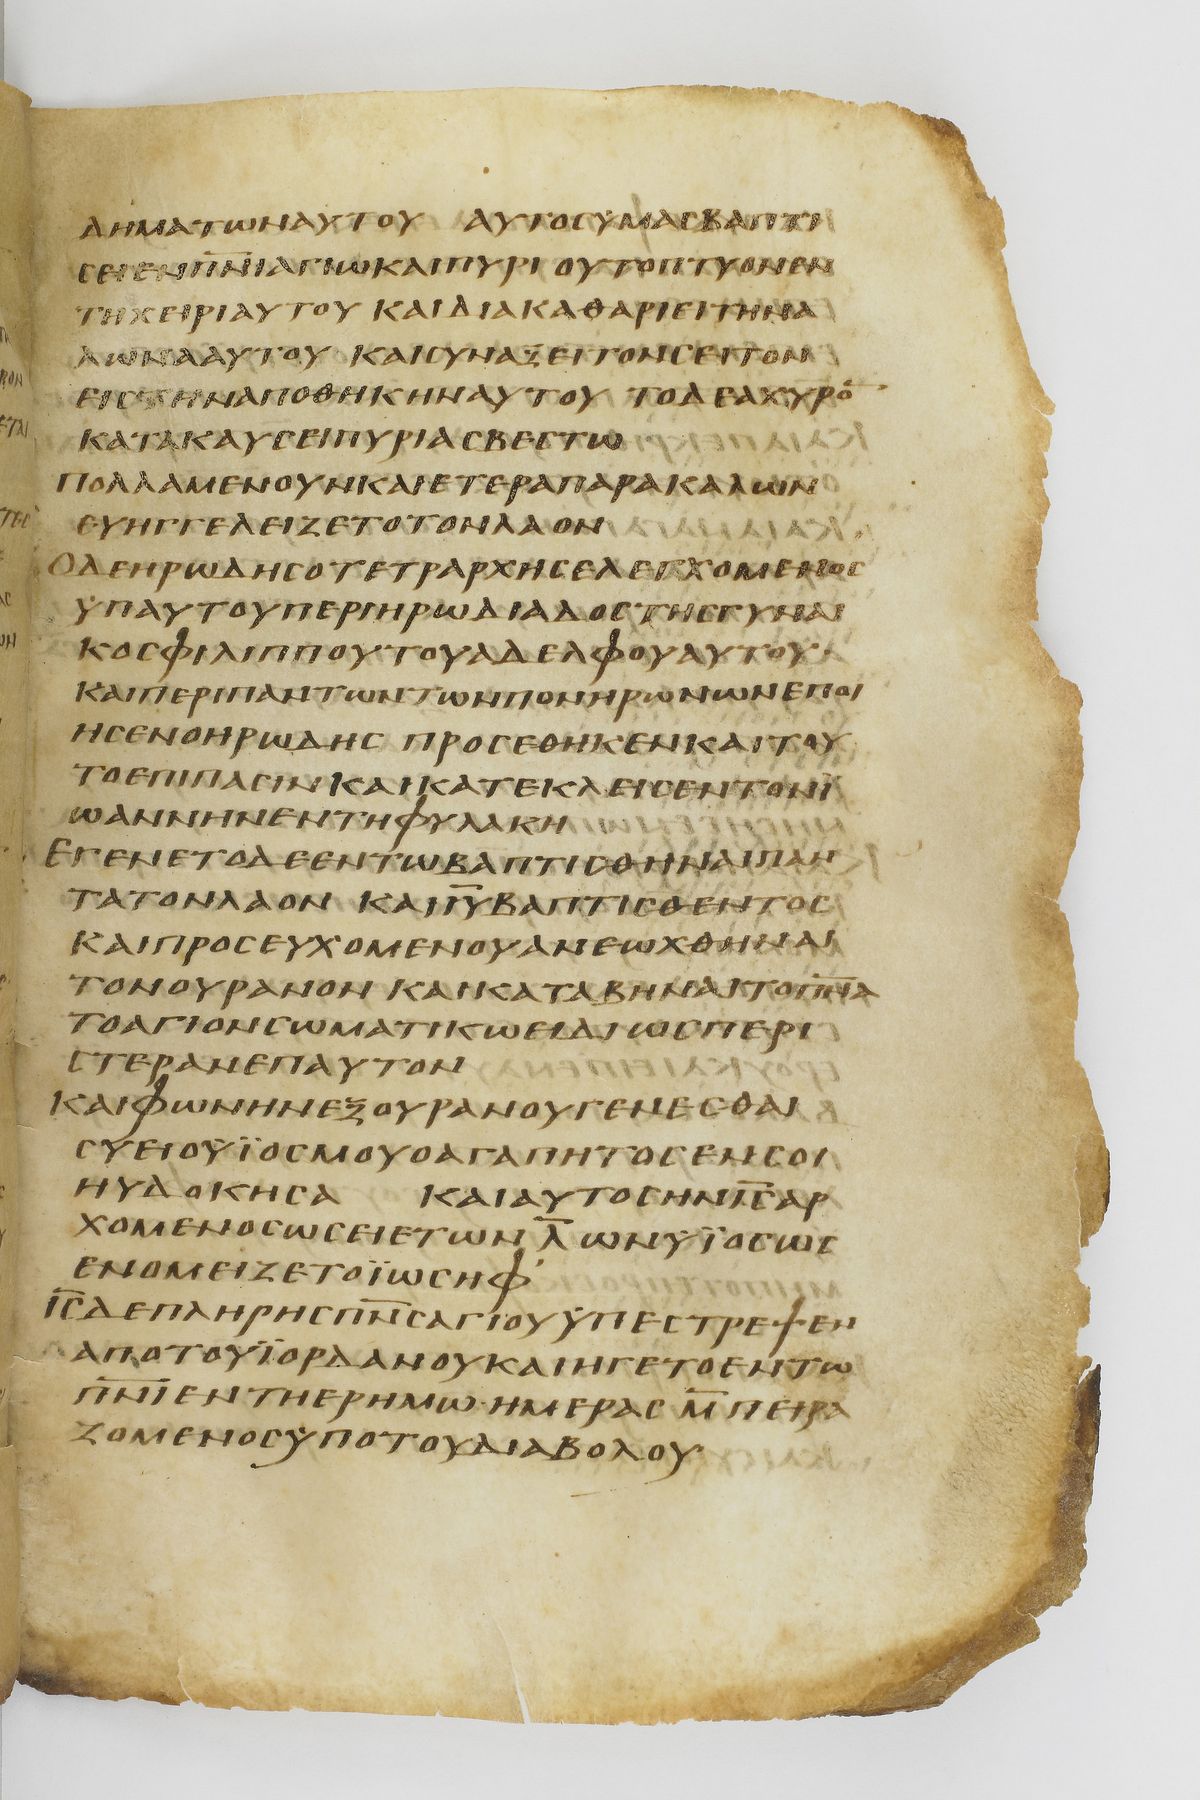 ΔΗΜΑΤΩΝΑΥΤΟΥ ΑΥΤΟΣΥΜΑΣΒΑΠΤΙ
ΣΕΙΕΝΠ̅Ν̅Ι̅ΑΓΙΩΚΑΙΠΥΡΙ ΟΥΤΟΠΤΥΟΝΕΝ
ΤΗΧΕΙΡΙΑΥΤΟΥ ΚΑΙΔΙΑΚΑΘΑΡΙΕΙΤΗΝΑ
ΛΩΝΑΑΥΤΟΥ ΚΑΙΣΥΝΑΞΕΙΤΟΝΣΕΙΤΟΝ
ΕΙΣΤΗΝΑΠΟΘΗΚΗΝΑΥΤΟΥ ΤΟΔΕΑΧΥΡΟ̅
ΚΑΤΑΚΑΥΣΕΙΠΥΡΙΑΣΒΕΣΤΩ
ΠΟΛΛΑΜΕΝΟΥΝΚΑΙΕΤΕΡΑΠΑΡΑΚΑΛΩΝ
ΕΥΗΓΓΕΛΕΙΖΕΤΟΤΟΝΛΑΟΝ
ΟΔΕΗΡΩΔΗΣΟΤΕΤΡΑΡΧΗΣΕΛΕΓΧΟΜΕΝΟΣ
ΫΠΑΥΤΟΥΠΕΡΙΗΡΩΔΙΑΔΟΣΤΗΣΓΥΝΑΙ
ΚΟΣΦΙΛΙΠΠΟΥΤΟΥΑΔΕΛΦΟΥΑΥΤΟΥ
ΚΑΙΠΕΡΙΠΑΝΤΩΝΤΩΝΠΟΝΗΡΩΝΩΝΕΠΟΙ
ΗΣΕΝΟΗΡΩΔΗΣ ΠΡΟΣΕΘΗΚΕΝΚΑΙΤΟΥ
ΤΟΕΠΙΠΑΣΙΝΚΑΙΚΑΤΕΚΛΕΙΣΕΝΤΟΝΙ
ΩΑΝΝΗΝΕΝΤΗΦΥΛΑΚΗ
ΕΓΕΝΕΤΟΔΕΕΝΤΩΒΑΠΤΙΣΘΗΝΑΙΠΑΝ
ΤΑΤΟΝΛΑΟΝ ΚΑΙΙ̅Υ̅ΒΑΠΤΙΣΘΕΝΤΟΣ
ΚΑΙΠΡΟΣΕΥΧΟΜΕΝΟΥΑΝΕΩΧΘΗΝΑΙ
ΤΟΝΟΥΡΑΝΟΝ ΚΑΙΚΑΤΑΒΗΝΑΙΤΟΠ̅Ν̅Α̅
ΤΟΑΓΙΟΝΣΩΜΑΤΙΚΩΕΙΔΙΩΣΠΕΡΙ
ΣΤΕΡΑΝΕΠΑΥΤΟΝ
ΚΑΙΦΩΝΗΝΕΞΟΥΡΑΝΟΥΓΕΝΕΣΘΑΙ
ΣΥΕΙΟΥΪΟΣΜΟΥΟΑΓΑΠΗΤΟΣΕΝΣΟΙ
ΗΥΔΟΚΗΣΑ ΚΑΙΑΥΤΟΣΗΝΙ̅Σ̅ΑΡ
ΧΟΜΕΝΟΣΩΣΕΙΕΤΩΝΛ̅ΩΝΥΪΟΣΩΣ
ΕΝΟΜΕΙΖΕΤΟΪΩΣΗΦ'
Ι̅Σ̅ΔΕΠΛΗΡΗΣΠ̅Ν̅Σ̅ΑΓΙΟΥΫΠΕΣΤΡΕΨΕΝ
ΑΠΟΤΟΥΪΟΡΔΑΝΟΥΚΑΙΗΓΕΤΟΕΝΤΩ
Π̅Ν̅Ι̅ΕΝΤΗΕΡΗΜΩ·ΗΜΕΡΑΣΜ̅ΠΕΙΡΑ
ΖΟΜΕΝΟΣΫΠΟΤΟΥΔΙΑΒΟΛΟΥ·